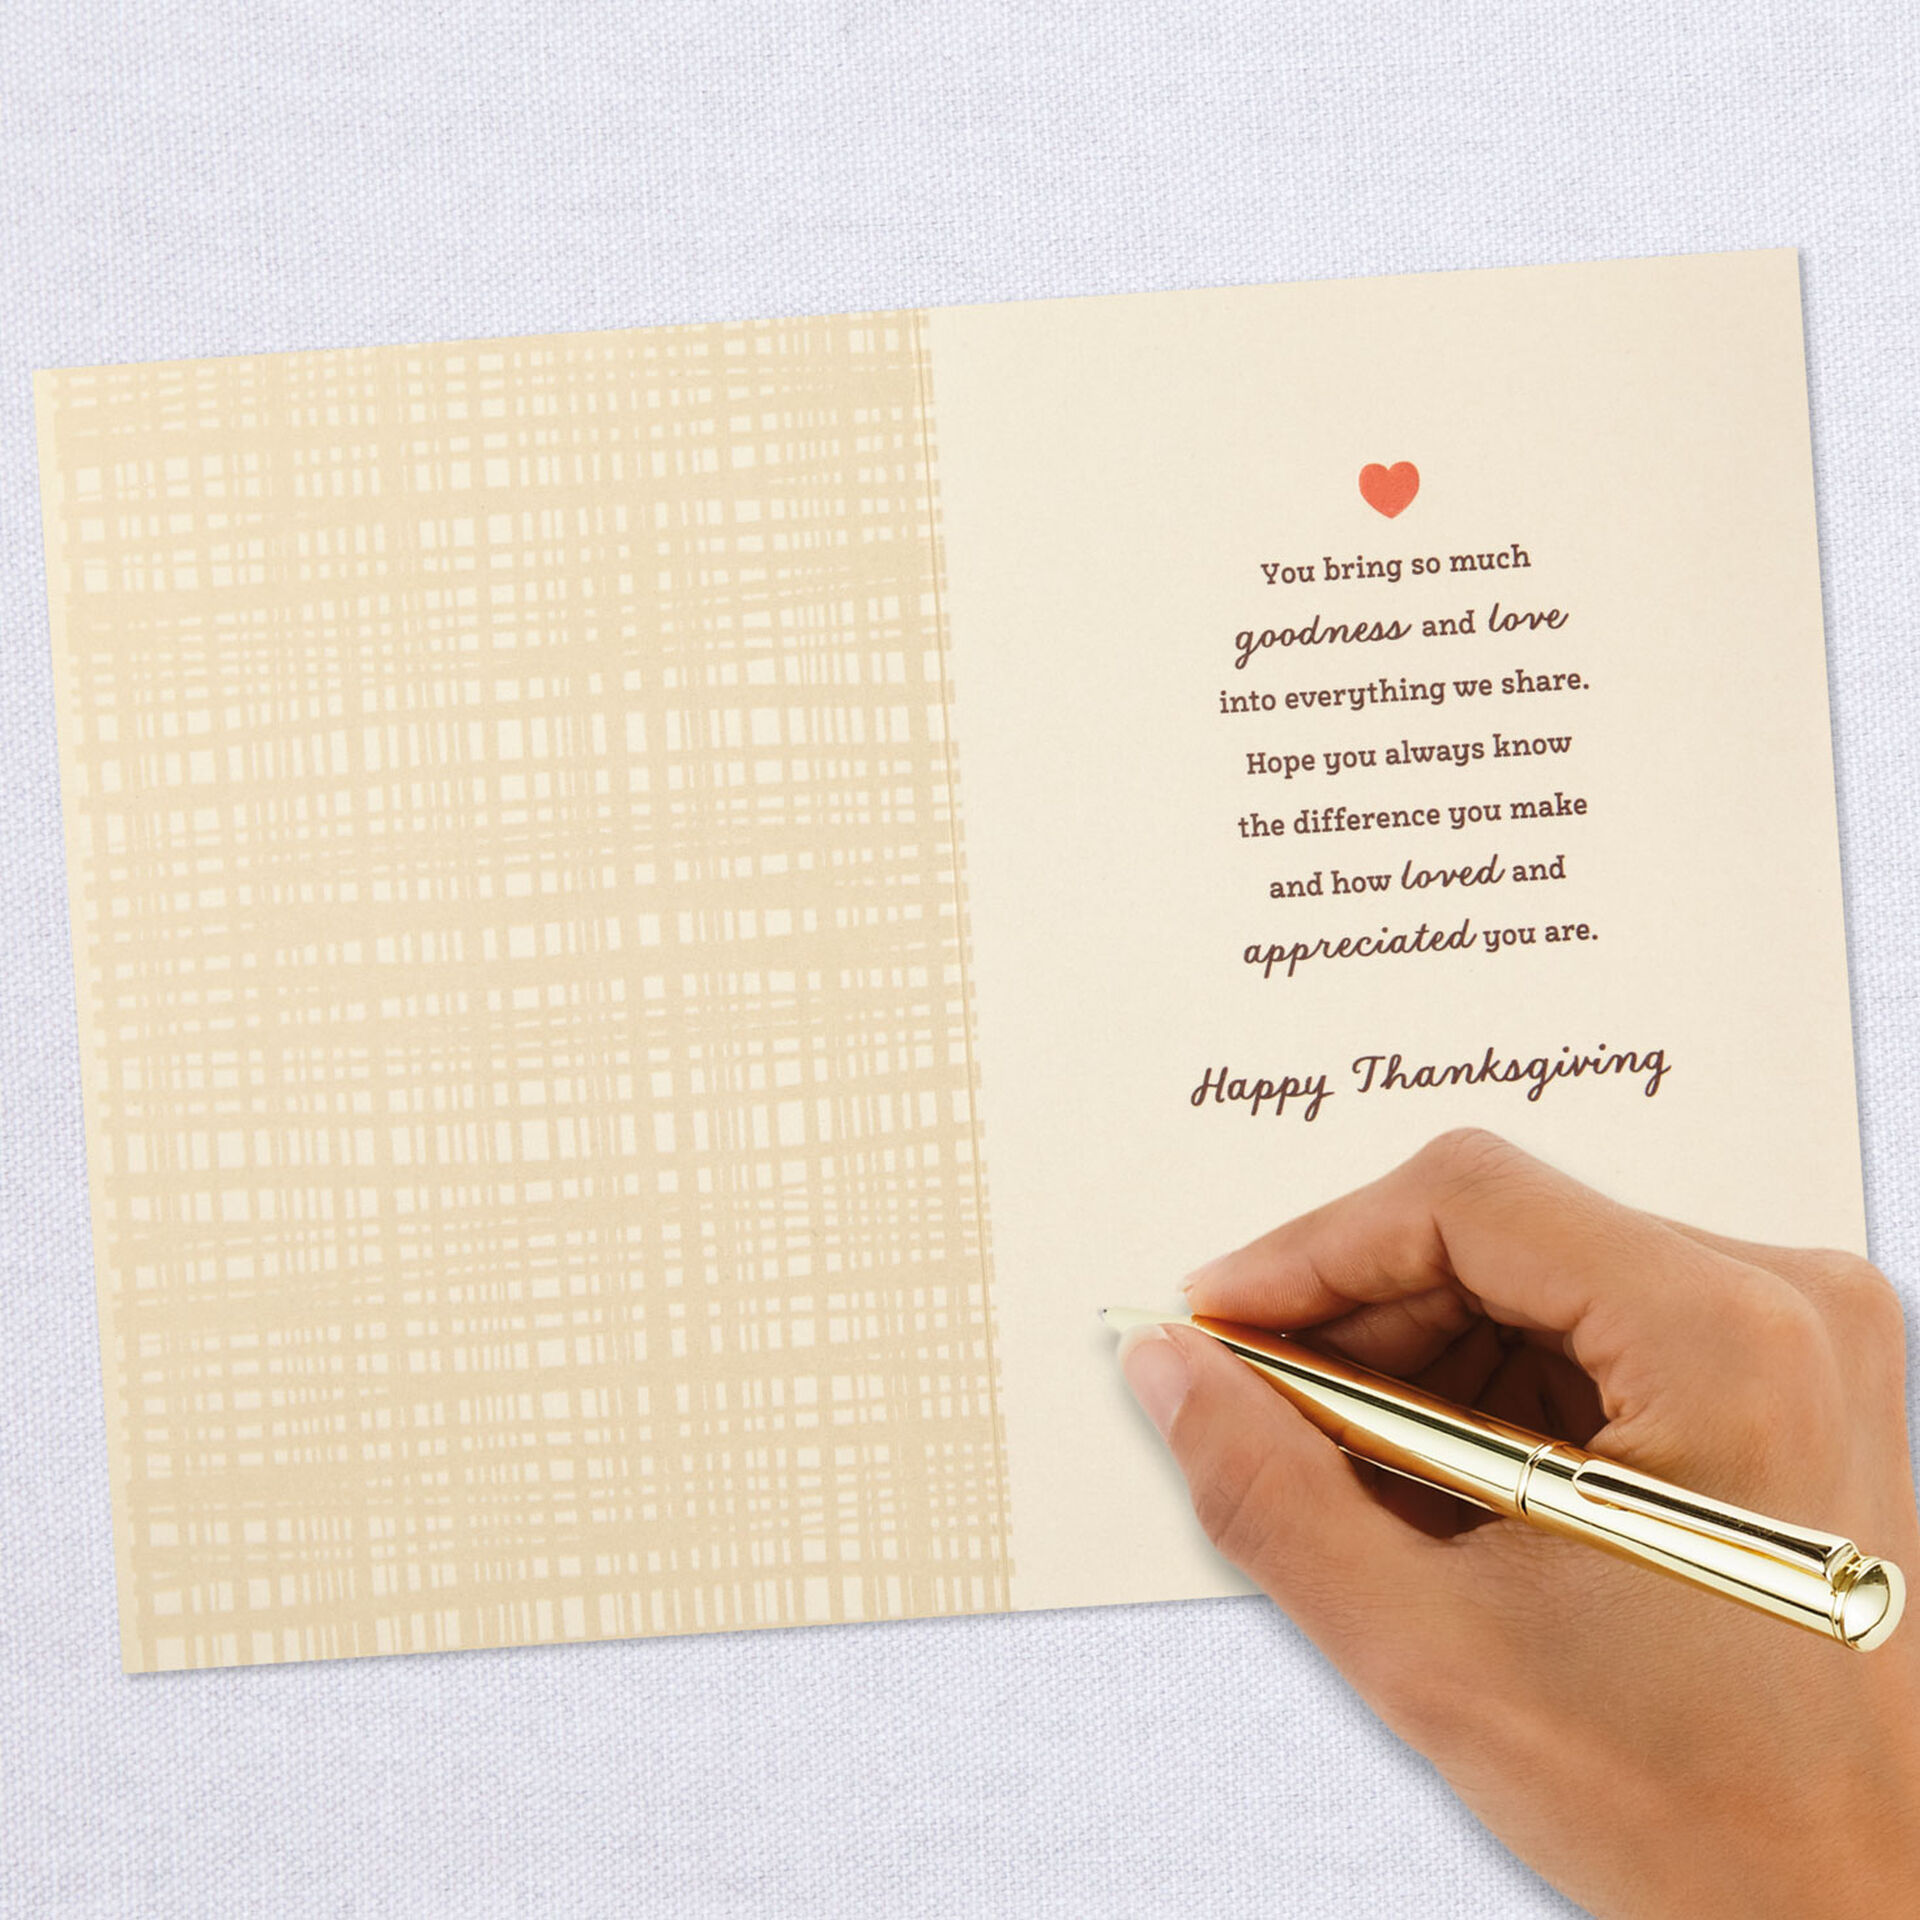 You bring so much
goodness and love
into everything we share.
Hope you always know
the difference you make
and how loved and
appreciated you are.
Happy Thanksgiving